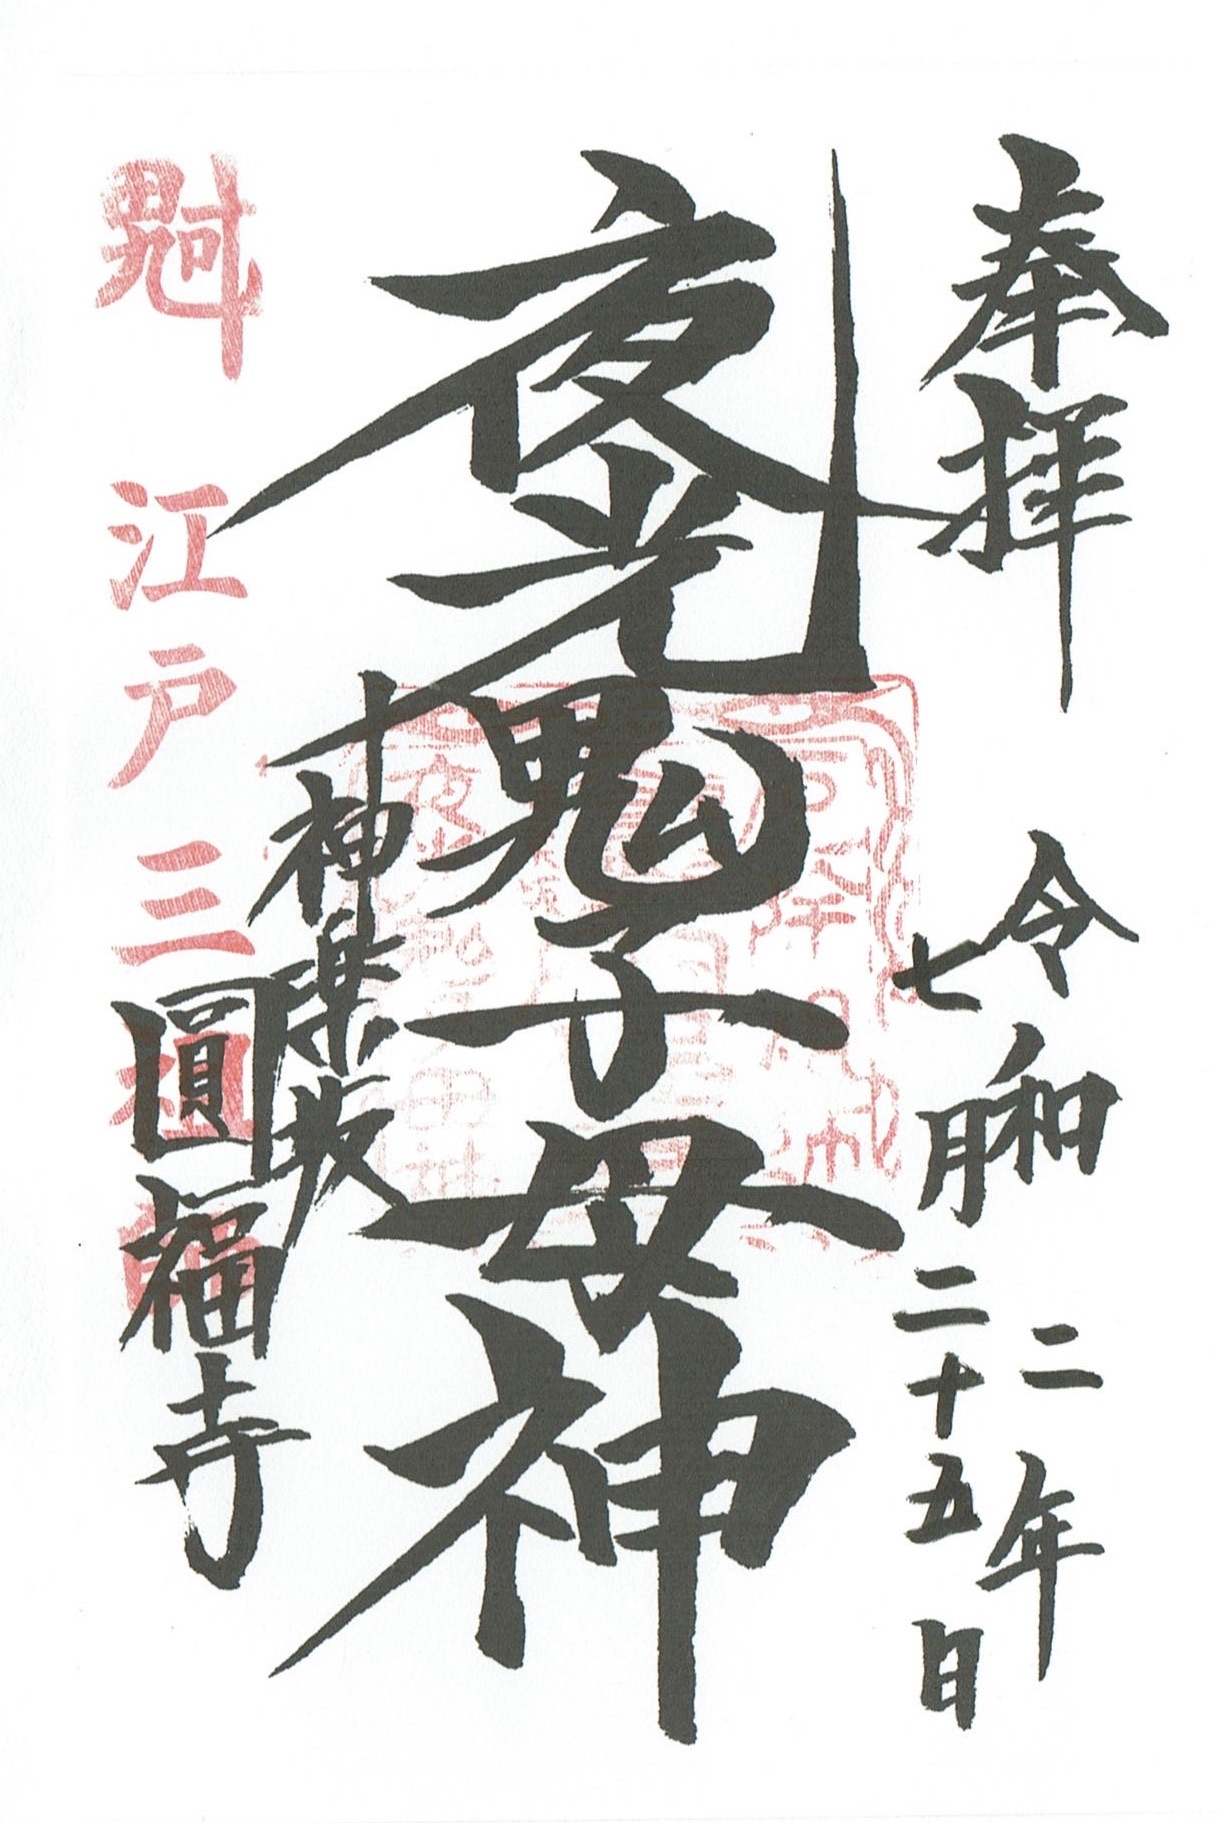 奉拝
令和二年
七月二十五日
夜光鬼子母神
神楽坂
圓福寺
江戸三祖師